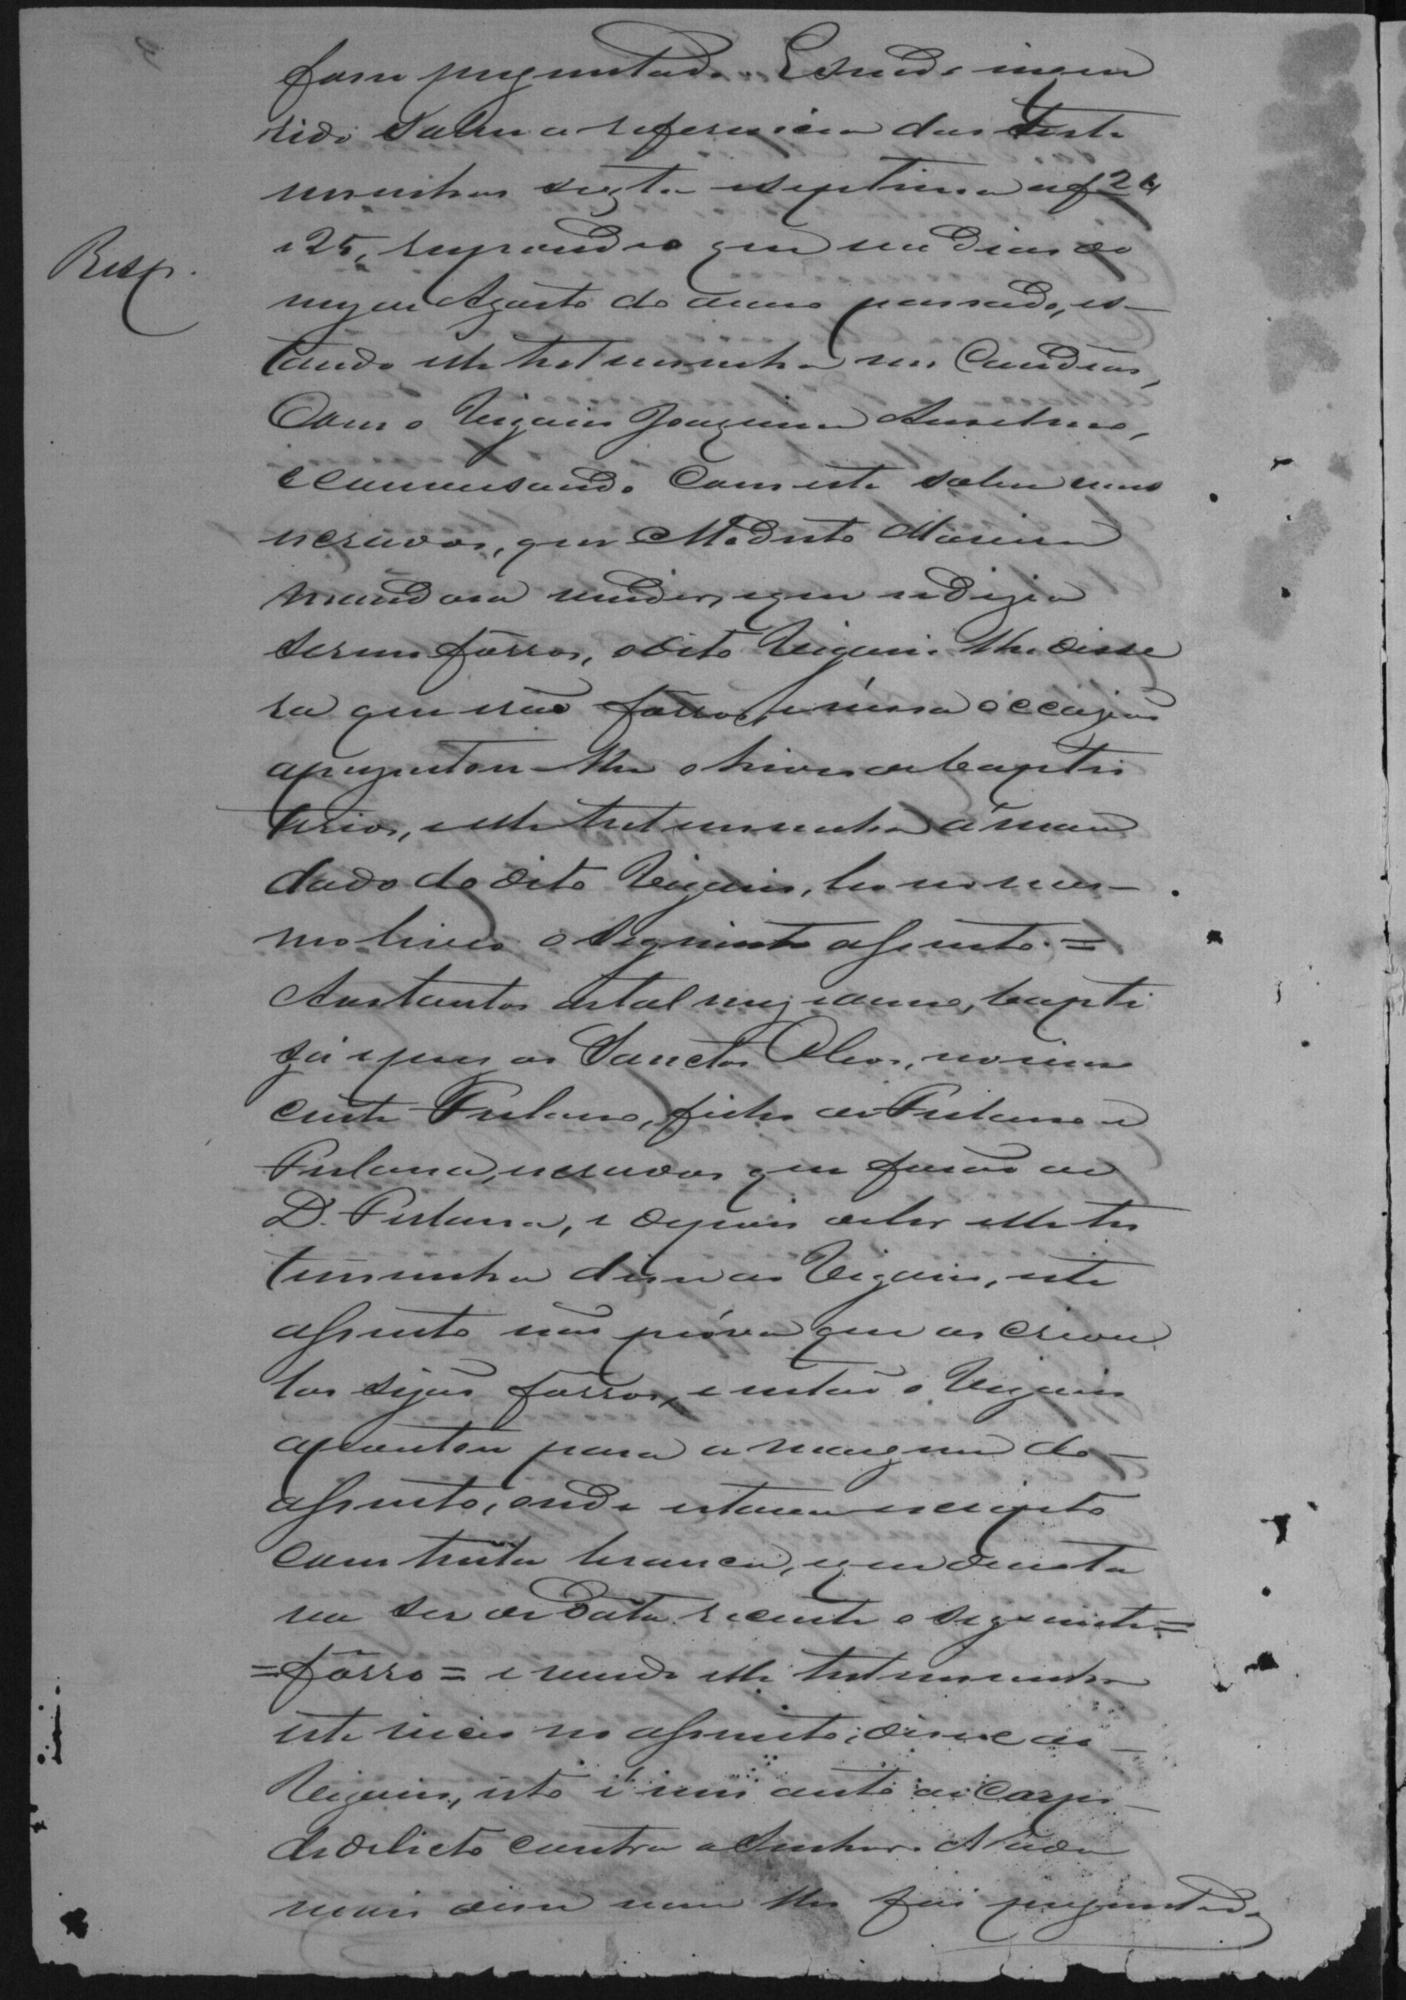 fora perguntado. E sendo inqui
rido sobre a referencia das teste
munhas sexta e septima a f 24
e 25, respondeo que nos dias do
Resp.
mez de Agosto do anno passado, es-
tando elle testemunha nos Candeas,
Com o Vigario Joaquim Anselmo,
e conversando Com este sobre uns
escravos, que Modesto Moreira
mandara vender, e que se dizia
serem fôrros, o dito Vigario lhe disse
ra que erão fôrros, e nessa occazião
aprezentou-lhe o livro de baptis
terios, e elle testemunha á man
dado do dito Vigario, leo no mes-
mo livro o seguinte assento. =
Aos tantos de tal mez e anno, bapti
zei e puz os Sanctos Oleos, no inno
cente Fulano, filho de Fulano e
Fulana, escravos que forão de
D. Fulana, e depois de ler elle tes
temunha disse ao Vigario, este
assento não próva que os criou
los sejão fôrros, e então o Vigario
apontou para a margem do-
assento, onde estava escripto
Com tinta branca, e que denota
va ser de data recente o seguinte =
= fôrro = e vendo elle testemunha
este vicio no assento, disse ao-
Vigario, isto é um auto de Corpo-
de delicto contra o Senhor. E Nada
mais disse nem lhe foi perguntado